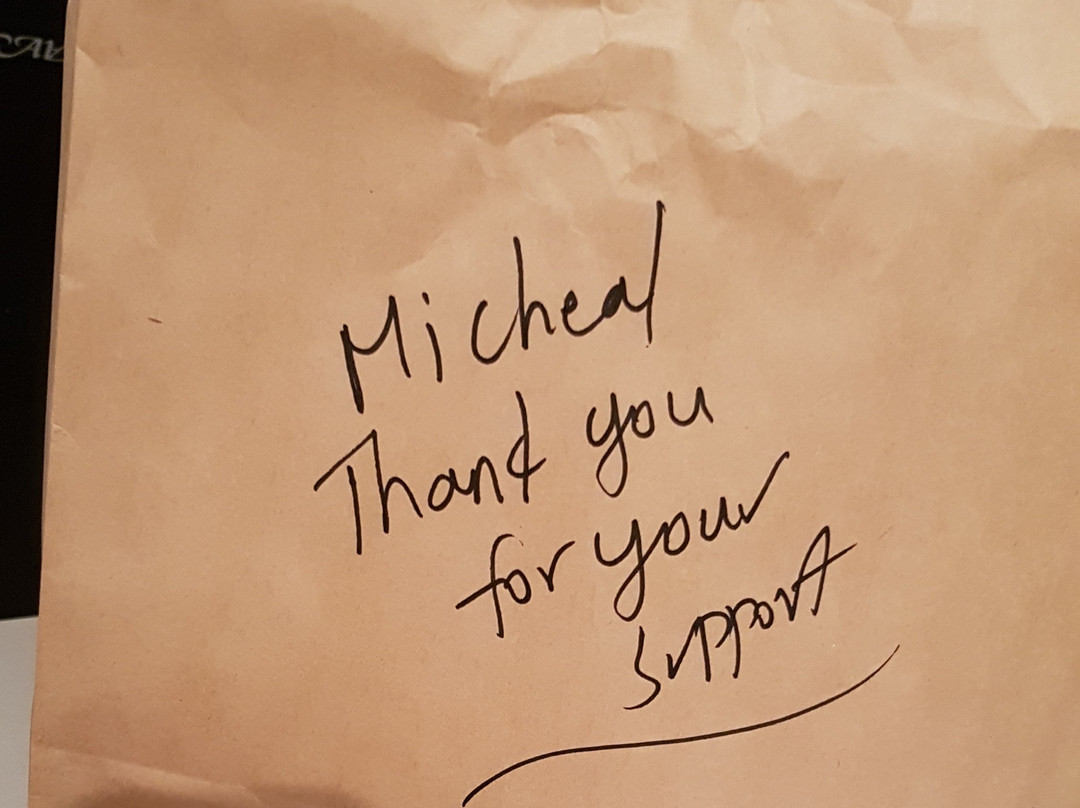 Micheal
Thank you
for your
support